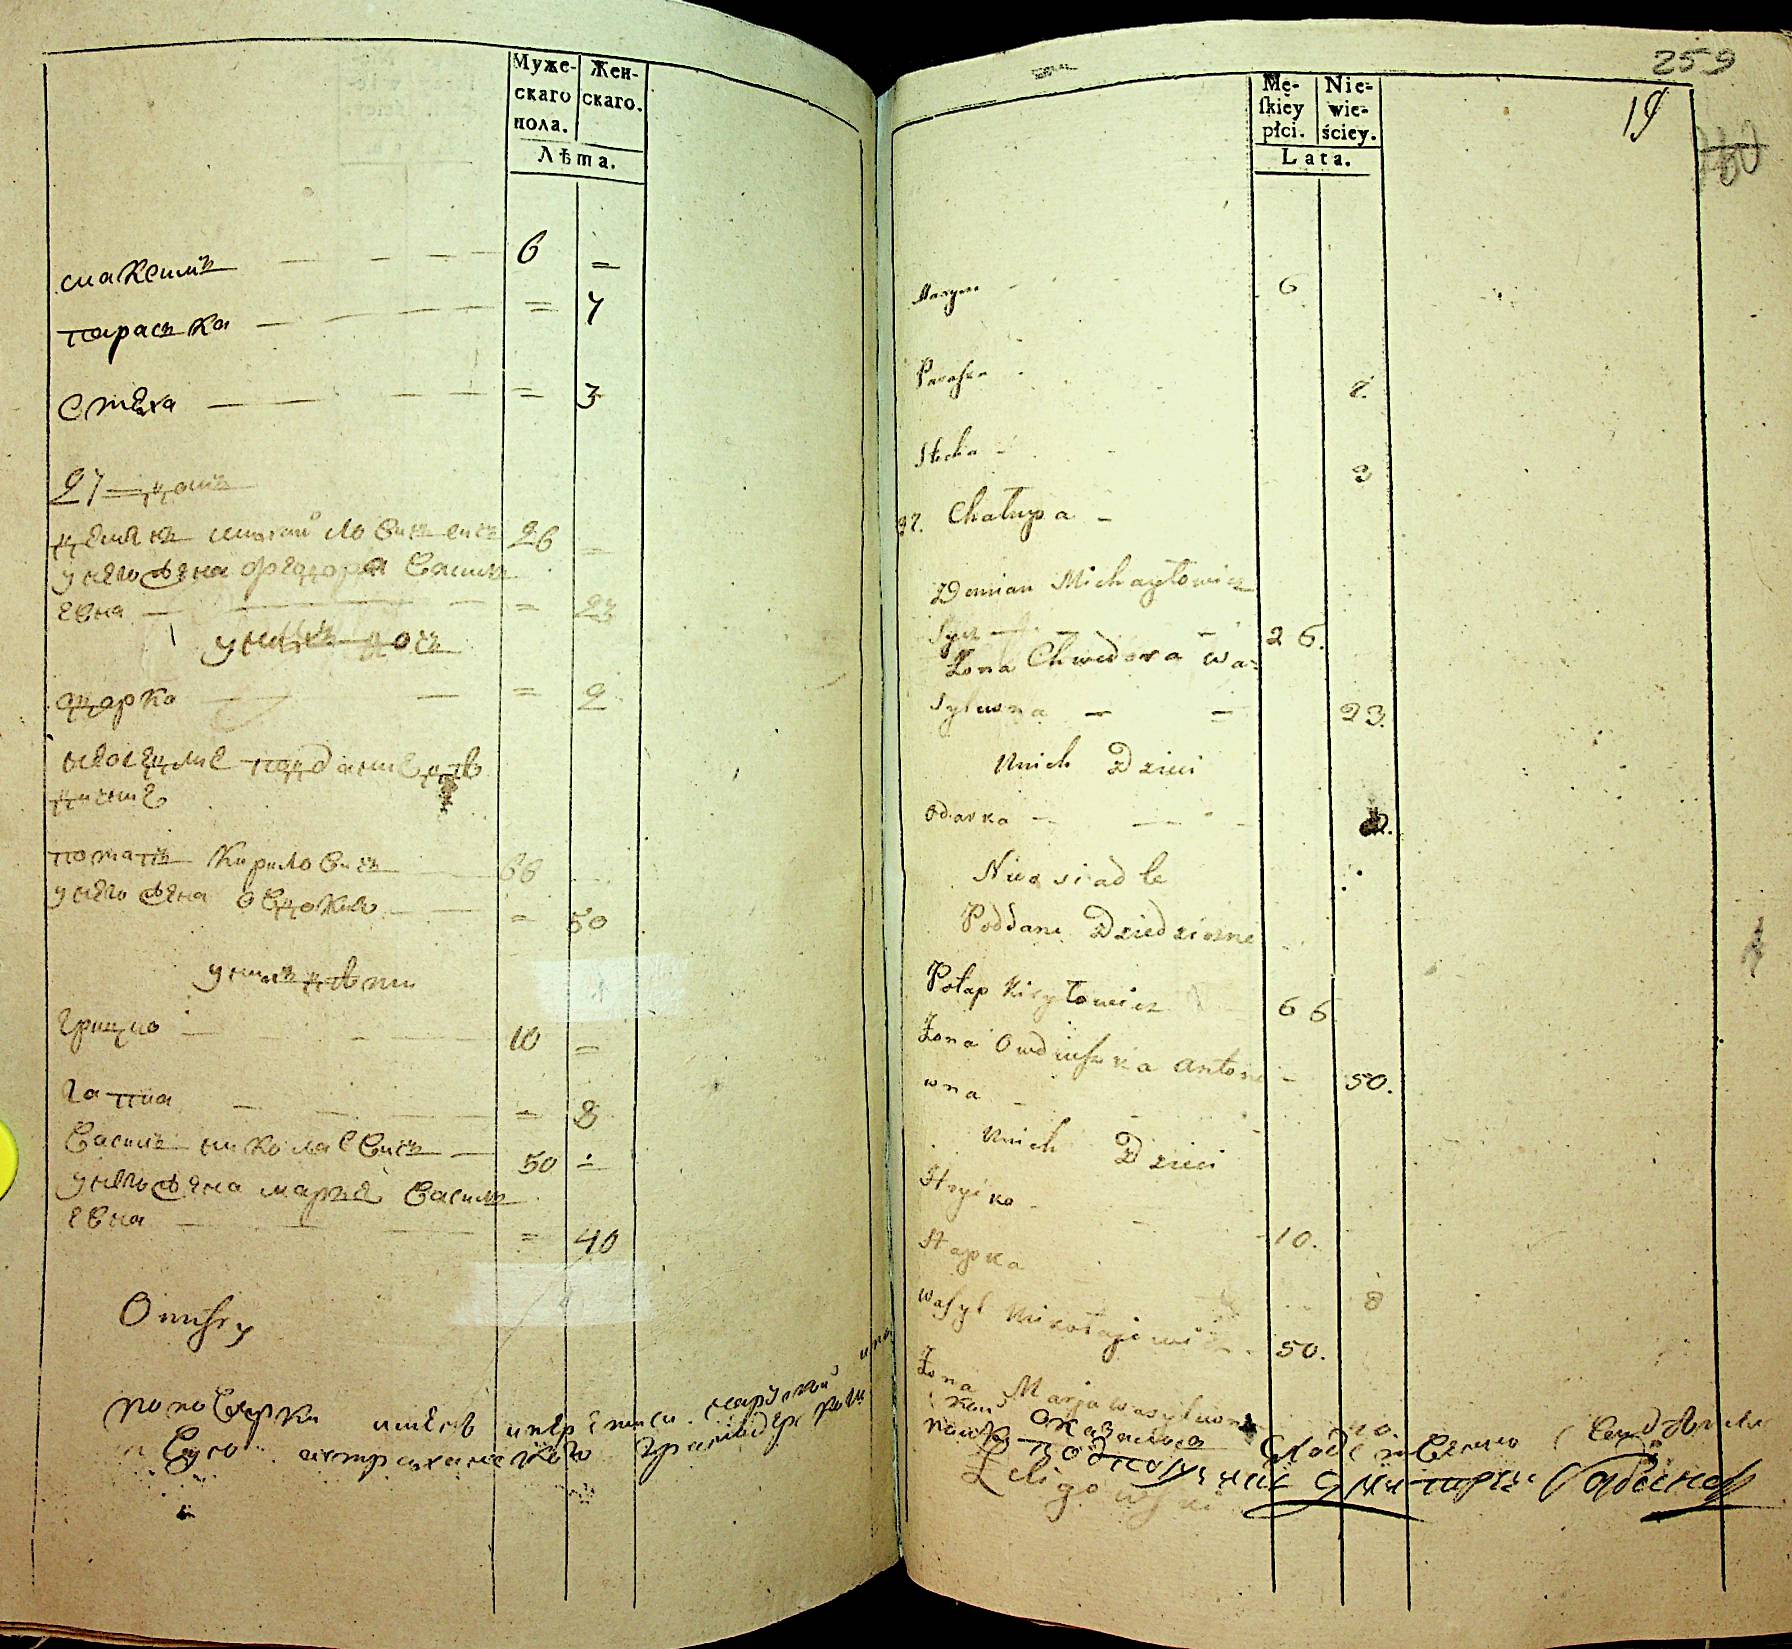 Муже-
скаго
пола.
Жен-
скаго.
Лѣта.
максимъ 6 =
параска = 7
стеха = 3
27 домъ
демянъ михайловичъ 26 =
у него жена федора василь
евна = 23
у нихъ дочь
одарка = 2
неоседлые подданые дѣ
дичные
потапъ кириловичъ 66
у него жена овдокия = 50
у нихъ дѣти
грицко 10 =
гапка = 8
василь николаевичъ 50 =
у него жена мария василь
евна = 40
259
19
Mę-
ſkiey
płci.
Nie-
wie-
ściey.
Lata.
Maxym 6
Paraska
Stecha 3
27. Chałupa
Demian Michayłowicz
26.
Zona Chwedora Wa-
sylewna 23.
Unich Dzieci
Odarka 2.
Nieosiadłe
Poddani Dziedziczne
Potap Kiryłowicz 66
Zona Owdiuszka Antono
wna 50.
Unich Dzieci
Hryćko 10.
Hapka 8
Wasyl Mikołajewicz 50.
Zona Marja Wasylewna 40.